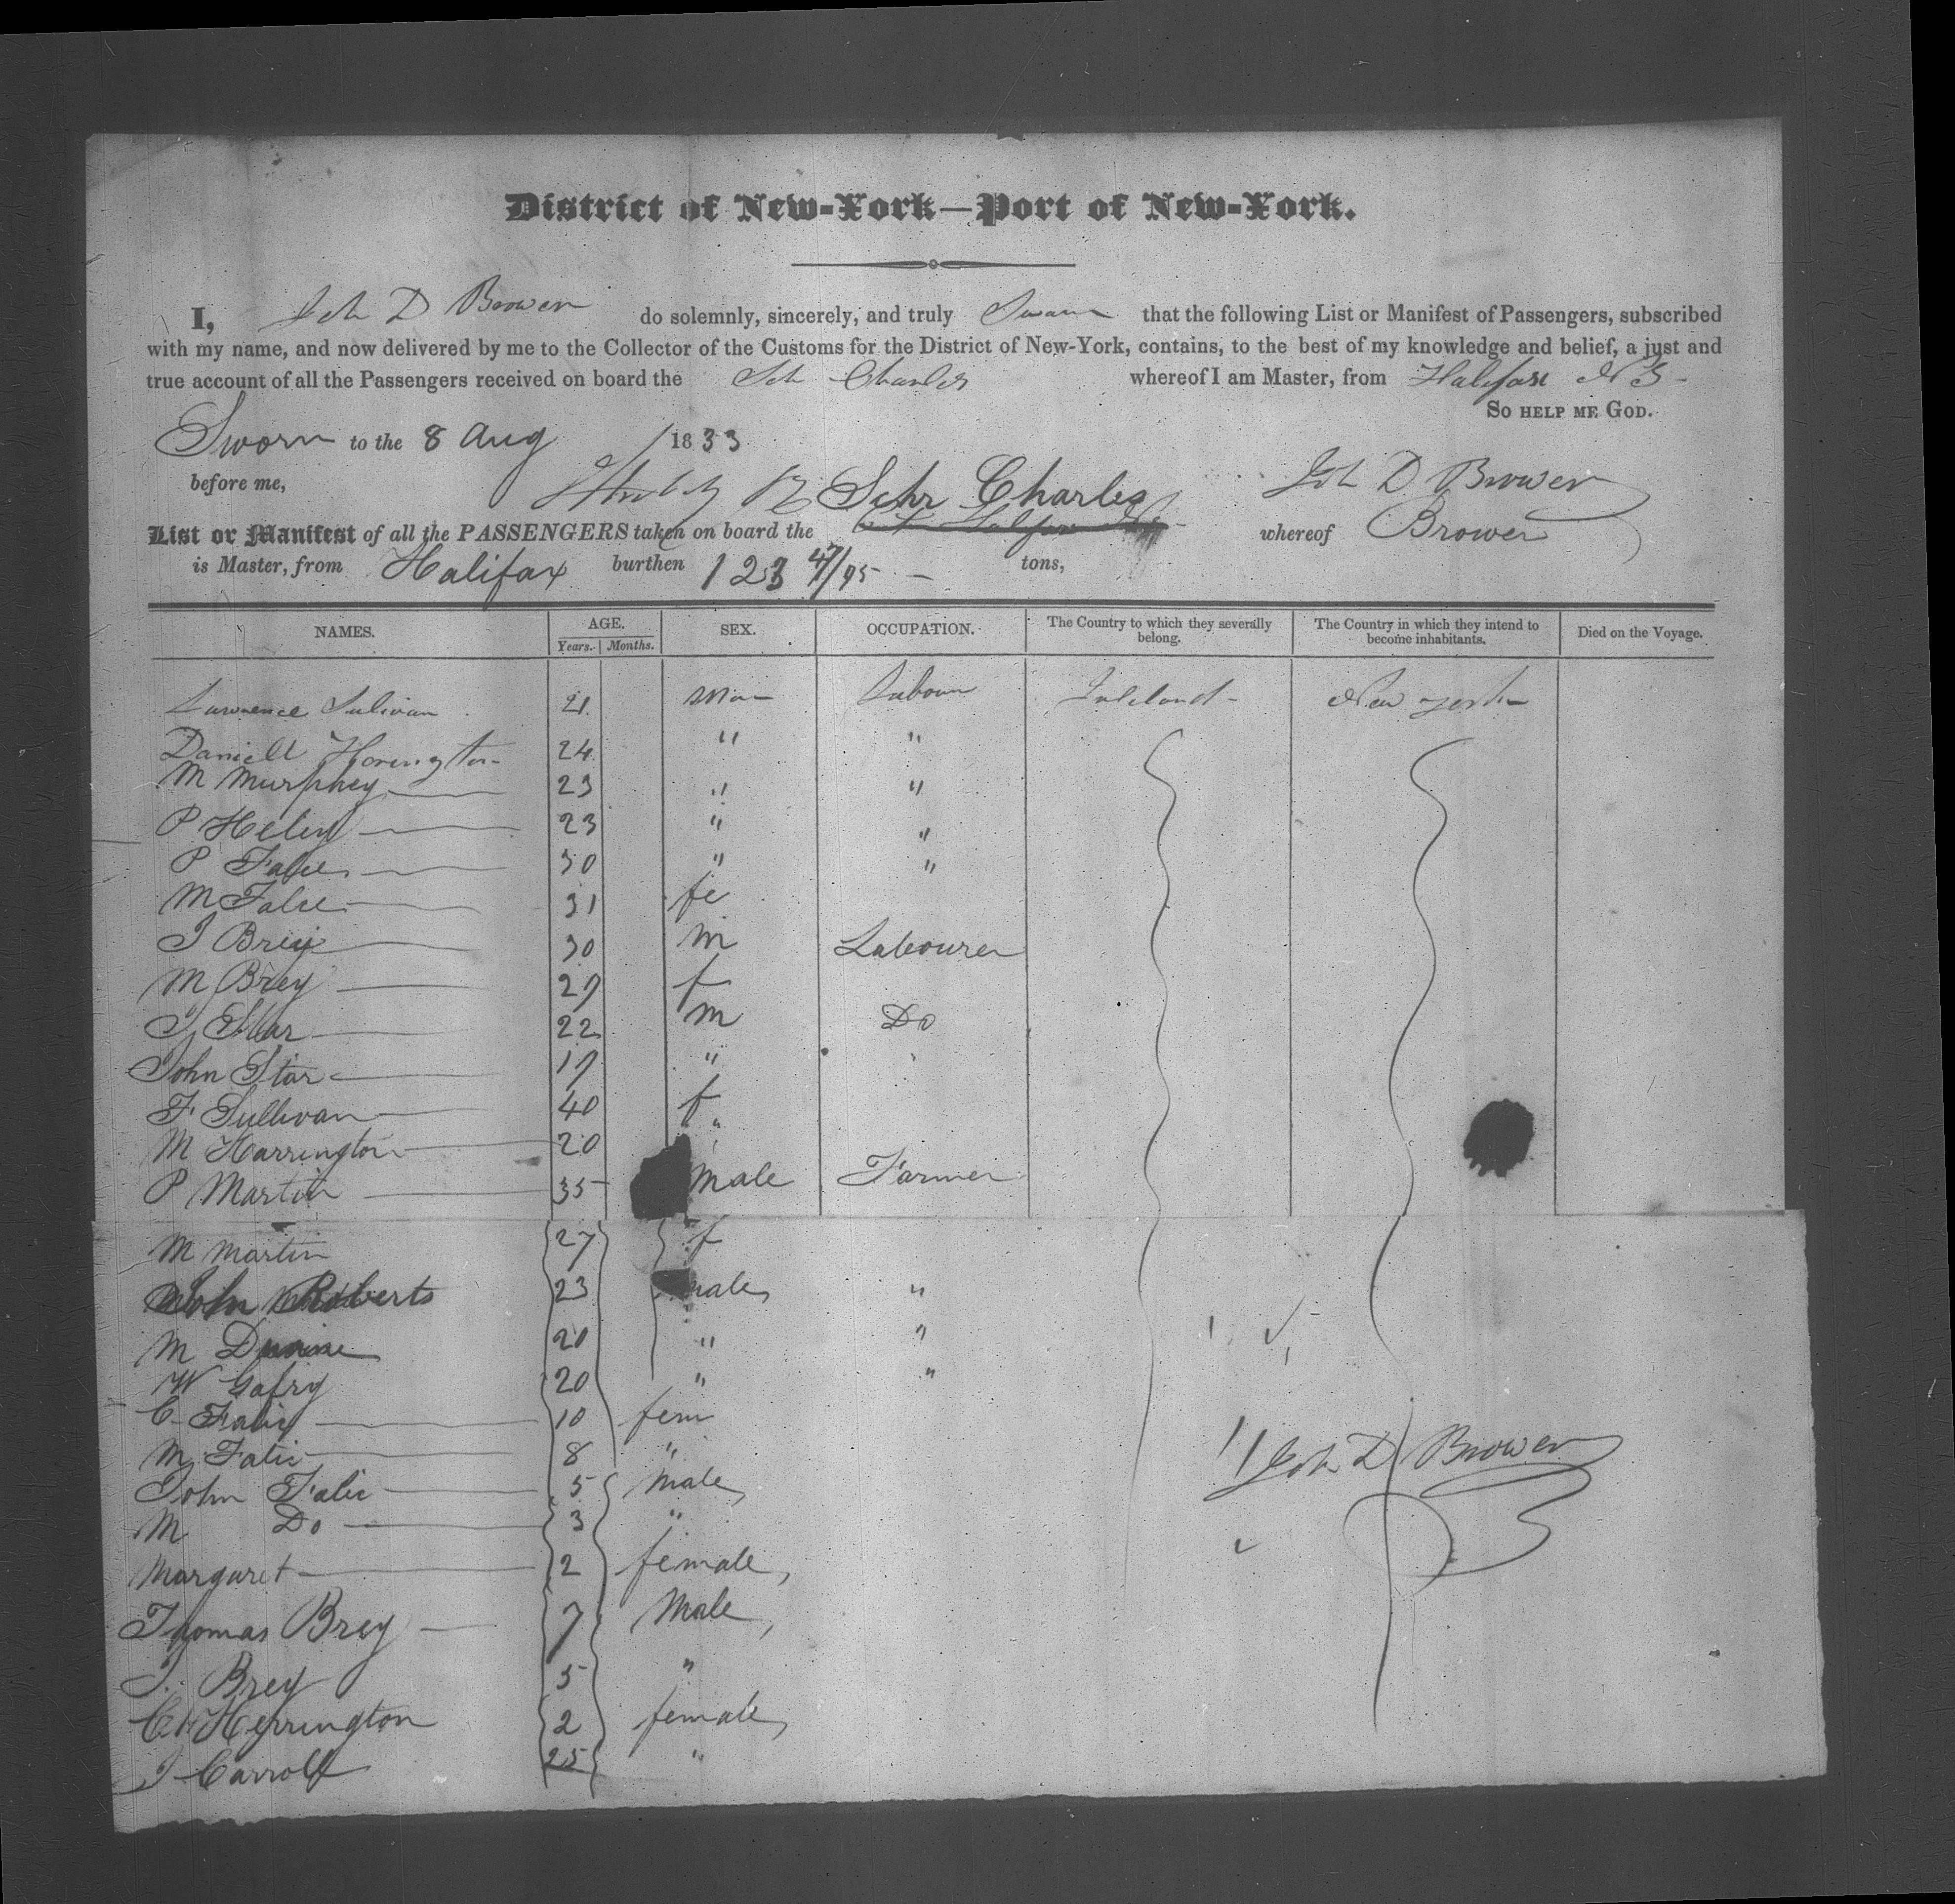 District of New-York—Port of New-York.
I, Joh D Brower do solemnly, sincerely, and truly Swear that the following List or Manifest of Passengers, subscribed
with my name, and now delivered by me to the Collector of the Customs for the District of New-York, contains, to the best of my knowledge and belief, a just and
true account of all the Passengers received on board the Sch Charles whereof I am Master, from Halifax N S
So help me God.
Sworn to the 8 Aug 1833
before me, Joh D Brower
List or Manifest of all the PASSENGERS taken on board the Schr Charles whereof Brower
is Master, from Halifax burthen 123 47/95 tons,
NAMES. AGE. SEX. OCCUPATION. The Country to which they severally belong. The Country in which they intend to become inhabitants. Died on the Voyage.
Years. Months.
Lawrence Sulivan 21 Man New york
Daniell 24 " "
M Murphey 23 " "
P Heley 23 " "
P Falie 30 " "
M Falie 31 fe
J Brey 30 m Labourer
M Brey 29 f
22 m Do
John Star 19 "
F Sullivan 40 f
M Harrington 20 "
P Martin 35 male Farmer
M Martin 27 f
John Roberts 23 male "
M 20 " "
W 20 " "
C Falie 10 fem
M Falie 8 "
John Falie 5 male
M Do 3 "
Margaret 2 female,
Joh D Brower
Thomas Brey 7 Male,
J. Brey 5 "
C Herrington 2 female,
J Carroll 25 "